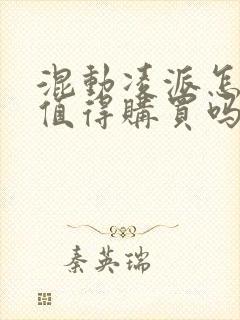 混動凌派怎
值得購買嗎
秦英瑞